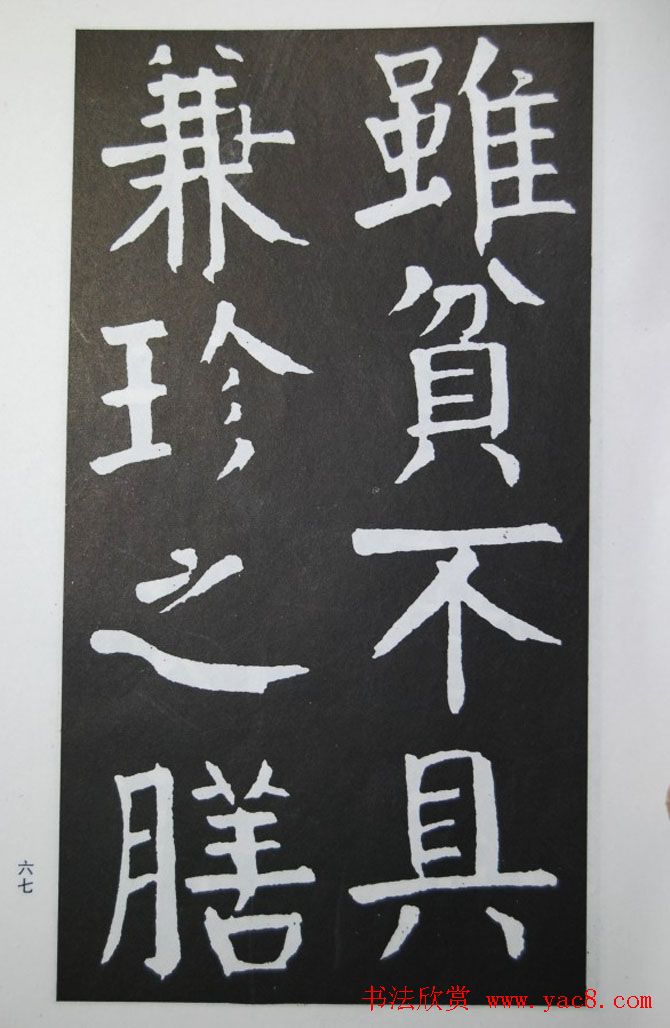 雖貧不具
兼珍之膳
六七
书法欣赏 www.yac8.com